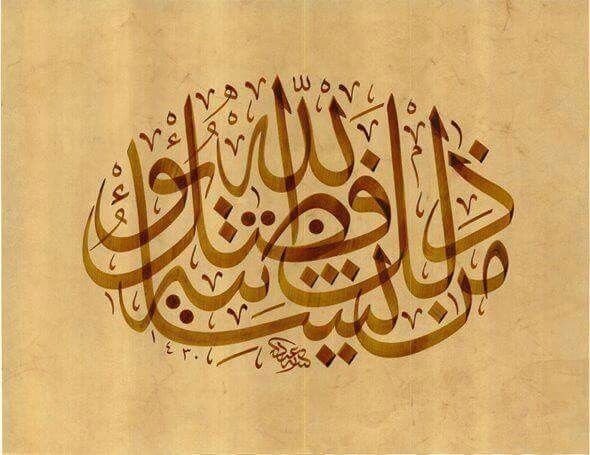 ذلك فضل الله يؤتيه من يشاء
١٤٣٠